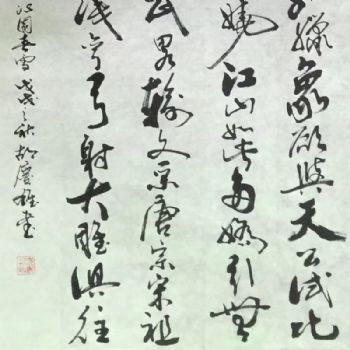 蠟象欲與天公试比
嬈江山如此多嬌引無
武畧输文采唐宗宋祖
识弯弓射大雕俱往
沁園春雪 戊戌之秋 胡慶雄書